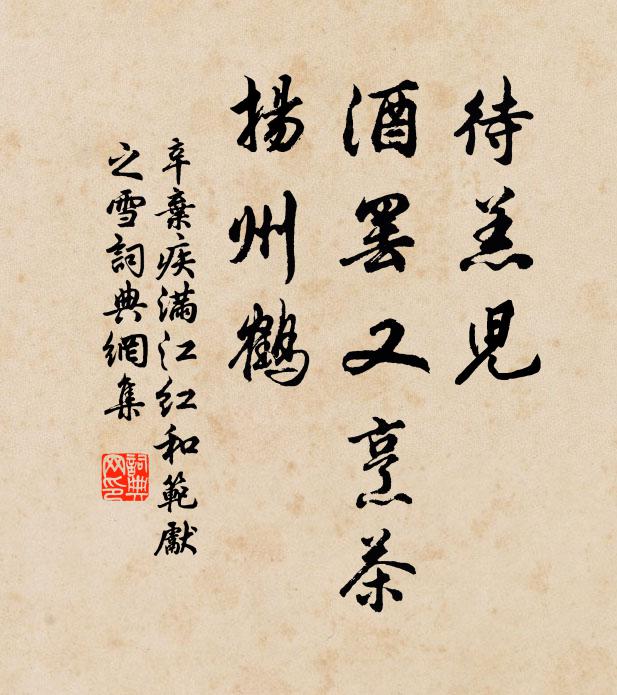 待羔児
酒罢又烹茶
揚州鶴
辛棄疾满江红和範獻
之雪詞典網集
詞典
网印